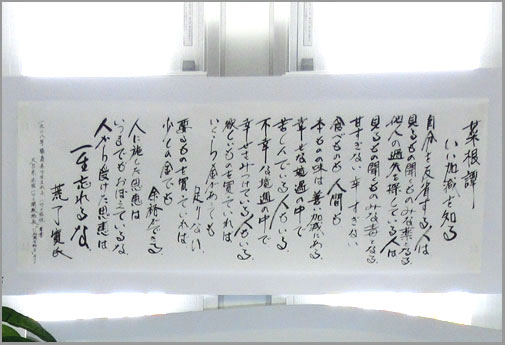 菜根譚
いい加減を知る
自分を反省する人は
見るもの聞くものみな薬となる
他人の過失を探している人は
見るもの聞くものみな毒となる
甘すぎない 辛すぎない
食べもの 人間も
本もの味は善い加減にある
幸せな境遇の中で
苦しんでいる人もいる
不幸な境遇の中で
幸せをみつけている人もいる
欲しいものを買っていれば
いくらの金があっても
足りない
要るものを買っていれば
少しの金でも
余裕ができる
人に施した恩恵は
いつまでもおぼえているな
人から受けた恩恵は
一生忘れるな
荒了寛